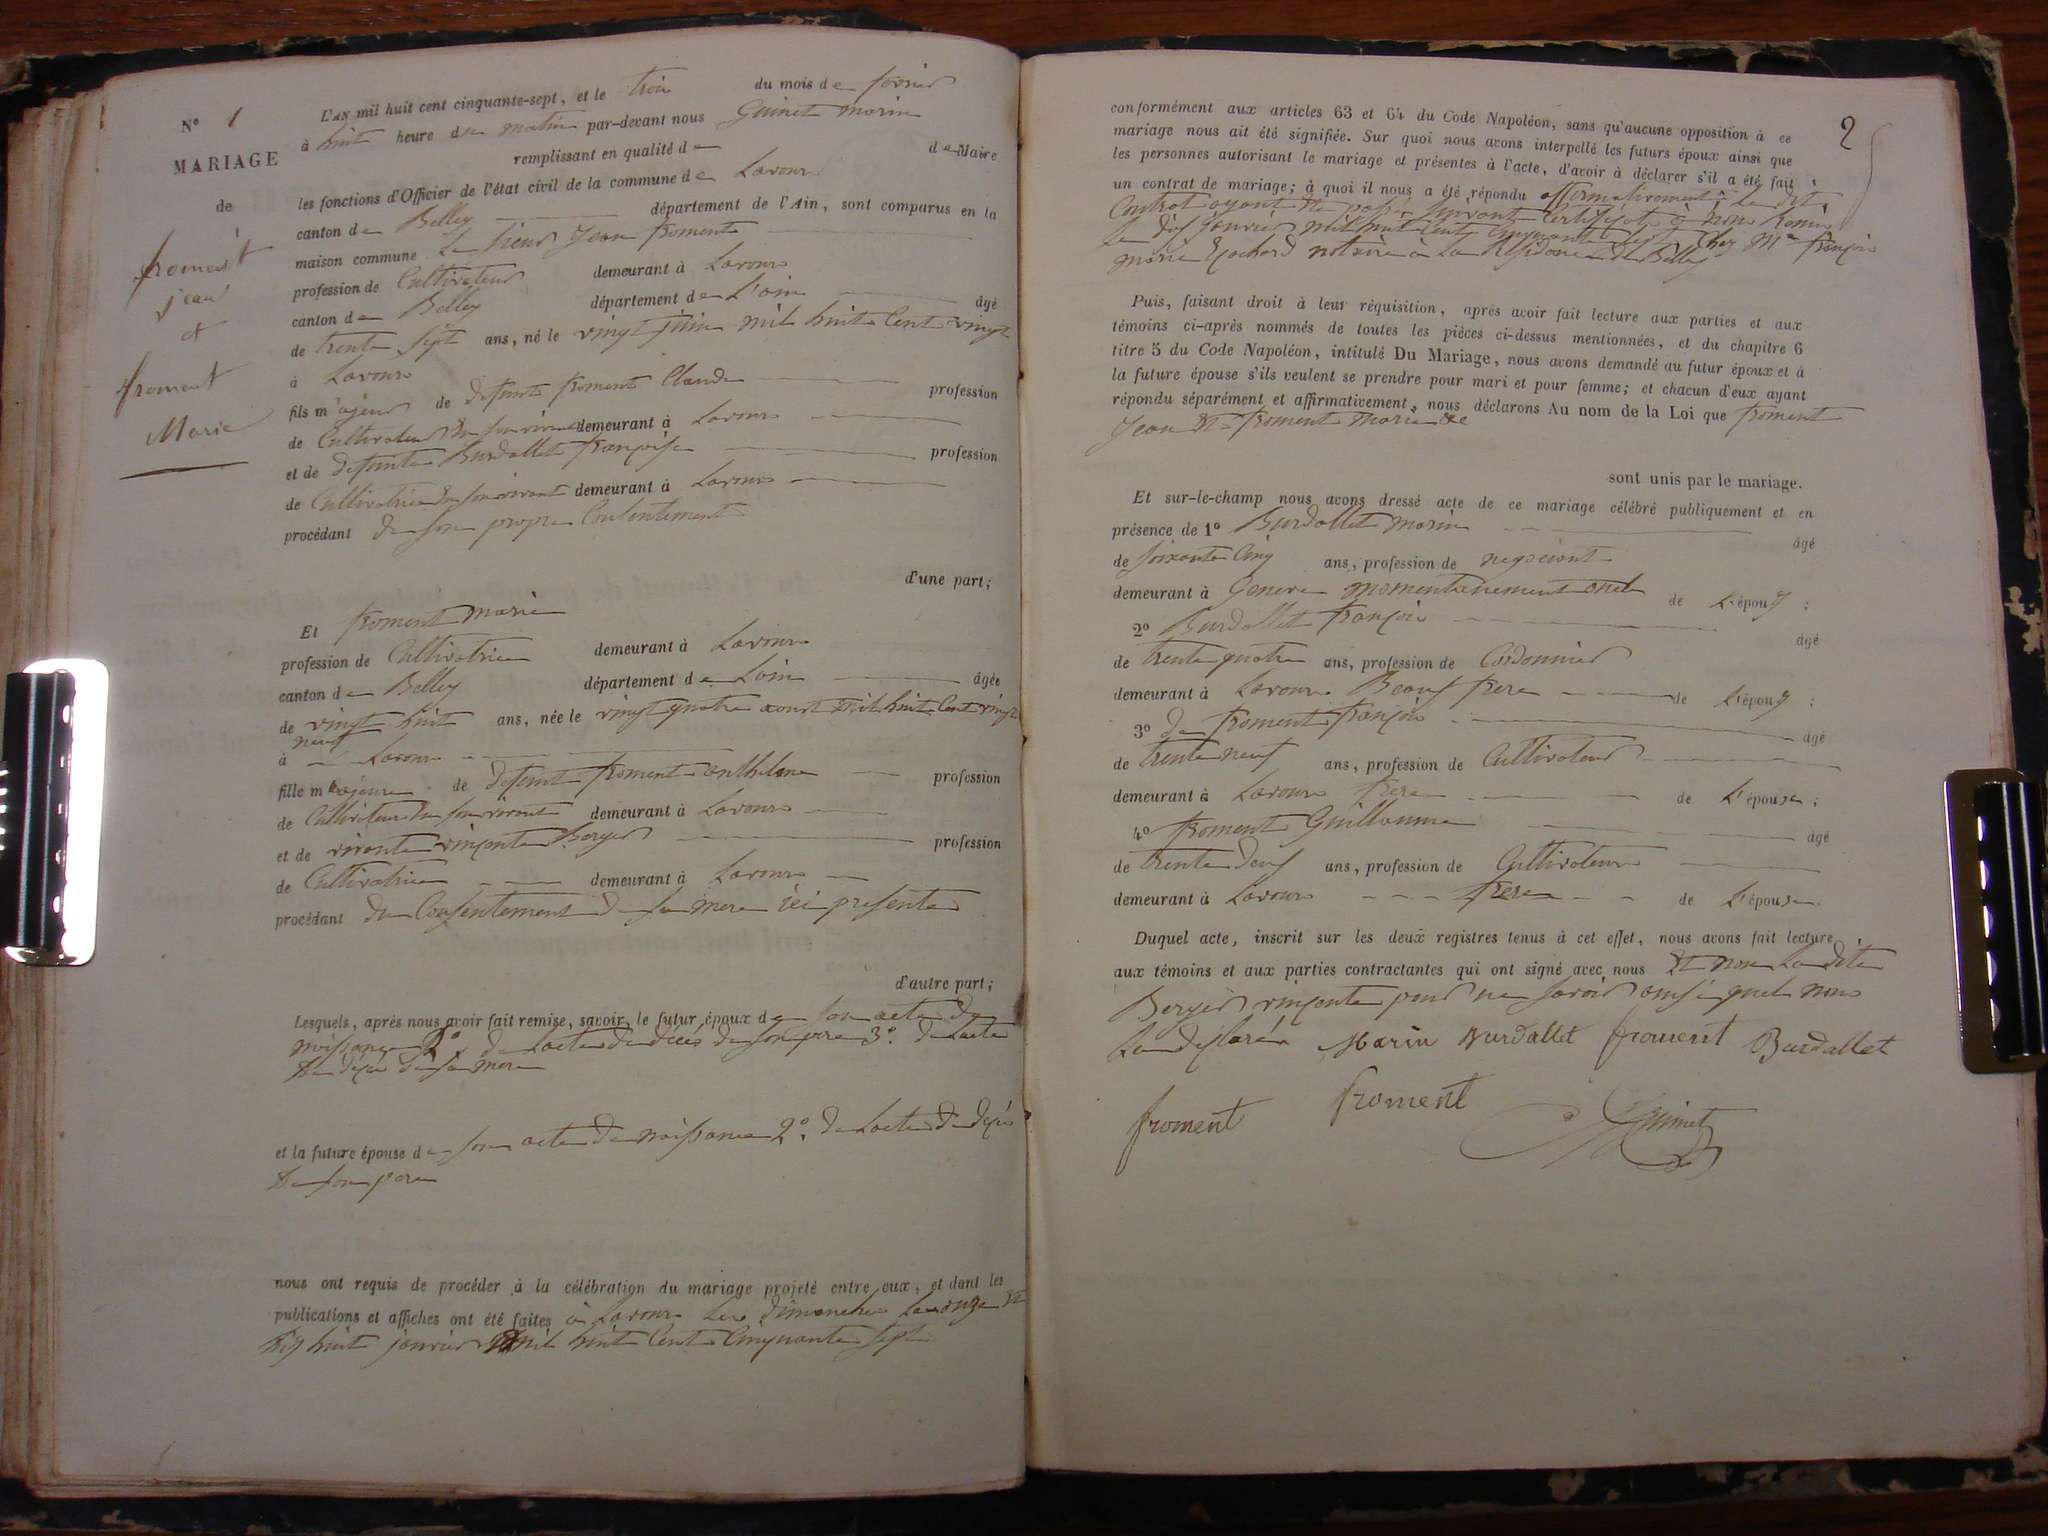 N° 1
MARIAGE
de
froment
jean
et
froment
Marie
L'AN mil huit cent cinquante-sept, et le trois du mois de fevrier
à huit heure du matin par-devant nous Guinet marin
remplissant en qualité de de Maire
les fonctions d'Officier de l'état civil de la commune de Lavours
canton de Belley département de l'Ain, sont comparus en la
maison commune Le sieur Jean froment
profession de Cultivateur demeurant à Lavours
canton de Belley département de L'ain âgé
de trente sept ans, né le vingt juin mil huit Cent vingt
à Lavours
fils majeur de defunt froment Claude profession
de Cultivateur de son vivant demeurant à Lavours
et de defunte Burdallet françoise profession
de Cultivatrice de son vivant demeurant à Lavours
procédant de son propre Consentement
d'une part;
Et froment marie
profession de Cultivatrice demeurant à Lavours
canton de Belley département de Lain âgée
de vingt huit ans, née le vingt quatre aout mil huit Cent vingt
neuf
à Lavours
fille majeure de defunt froment anthelme profession
de Cultivateur de son vivant demeurant à Lavours
et de vivante vinçente Berger profession
de Cultivatrice demeurant à Lavours
procédant du Consentement de sa mere ici presente
d'autre part;
Lesquels, après nous avoir fait remise, savoir, le futur époux de son acte de
naissance 2° de Lacte de décès de son pere 3° de Lacte
de deçes de sa mere
et la future épouse de son acte de naissance 2° de Lacte de deçès
de son pere
nous ont requis de procéder à la célébration du mariage projeté entre eux, et dont les
publications et affiches ont été faites à Lavours Les dimanches Le onze et
dix huit janvier mil huit Cent Cinquante sept
2
conformément aux articles 63 et 64 du Code Napoléon, sans qu'aucune opposition à ce
mariage nous ait été signifiée. Sur quoi nous avons interpellé les futurs époux ainsi que
les personnes autorisant le mariage et présentes à l'acte, d'avoir à déclarer s'il a été fait
un contrat de mariage; à quoi il nous a été répondu affirmativement Le dit
Contrat ayant ete passé suivant Certificat à nous Remis
Le dix janvier mil huit Cent Cinquante sept Chez Me françois
marie notaire à La Residence de Belley
Puis, faisant droit à leur réquisition, après avoir fait lecture aux parties et aux
témoins ci-après nommés de toutes les pièces ci-dessus mentionnées, et du chapitre 6
titre 5 du Code Napoléon, intitulé Du Mariage, nous avons demandé au futur époux et à
la future épouse s'ils veulent se prendre pour mari et pour femme; et chacun d'eux ayant
répondu séparément et affirmativement, nous déclarons Au nom de la Loi que froment
Jean et froment marie
sont unis par le mariage.
Et sur-le-champ nous avons dressé acte de ce mariage célébré publiquement et en
présence de 1° Burdallet marin âgé
de soixante Cinq ans, profession de negociant
demeurant à Geneve momentanement oncle de L'époux;
2° Burdallet françois âgé
de trente quatre ans, profession de Cordonnier
demeurant à Lavours Beaux frere de L'époux;
3° de froment françois âgé
de trente neuf ans, profession de Cultivateur
demeurant à Lavours frere de L'épouse;
4° froment Guillaume âgé
de trente deux ans, profession de Cultivateur
demeurant à Lavours frere de L'épouse.
Duquel acte, inscrit sur les deux registres tenus à cet effet, nous avons fait lecture
aux témoins et aux parties contractantes qui ont signé avec nous et non La dite
Berger vinçente pour ne savoir ainsi quel nous
La declaré Marin Burdallet froment Burdallet
froment froment Guinet